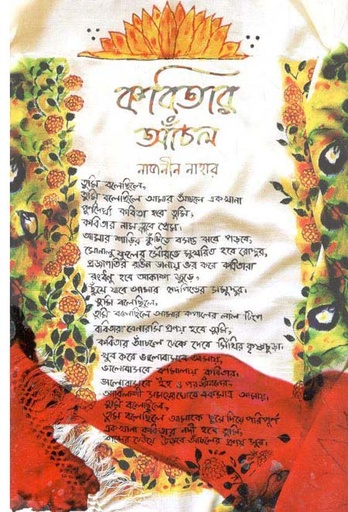 কবিতার
আঁচল
নাজনীন নাহার
তুমি বলেছিলে,
তুমি বলেছিলে আমার আঁচলে একখানা
পূর্ণদৈর্ঘ্য কবিতা হবে তুমি,
কবিতার নাম হবে প্রেম।
আমার শাড়ির কুচিতে বসন্ত ঝরে পড়বে,
সোনালু ফুলের সৌরভে সুরভিত হবে রোদ্দুর,
প্রজাপতির রঙিন ডানায় ভর করে কবিতারা
রংধনু হবে আকাশ জুড়ে,
ছুঁয়ে যাবে আমার হৃদপিণ্ডের সমুদ্দুর।
তুমি বলেছিলে,
তুমি বলেছিলে আমার কপালের লাল টিপে
কবিতার বেনারসি প্রণয় হবে তুমি,
কবিতার আঁচলে ঢেকে দেবে সিঁথির কৃষ্ণচূড়া।
খুব করে ভালোবাসবে আমায়,
ভালোবাসবে
কবিতার।
ভালোবাসবে ইহ ও পরজীবনে।
আমায়।
তুমি বলেছিলে,
তুমি বলেছিলে আমাকে ছুঁয়ে দিয়ে পরিপূর্ণ
একখানা কবিতার নদী হবে তুমি,
আঁচলের প্রণয় সুরে।